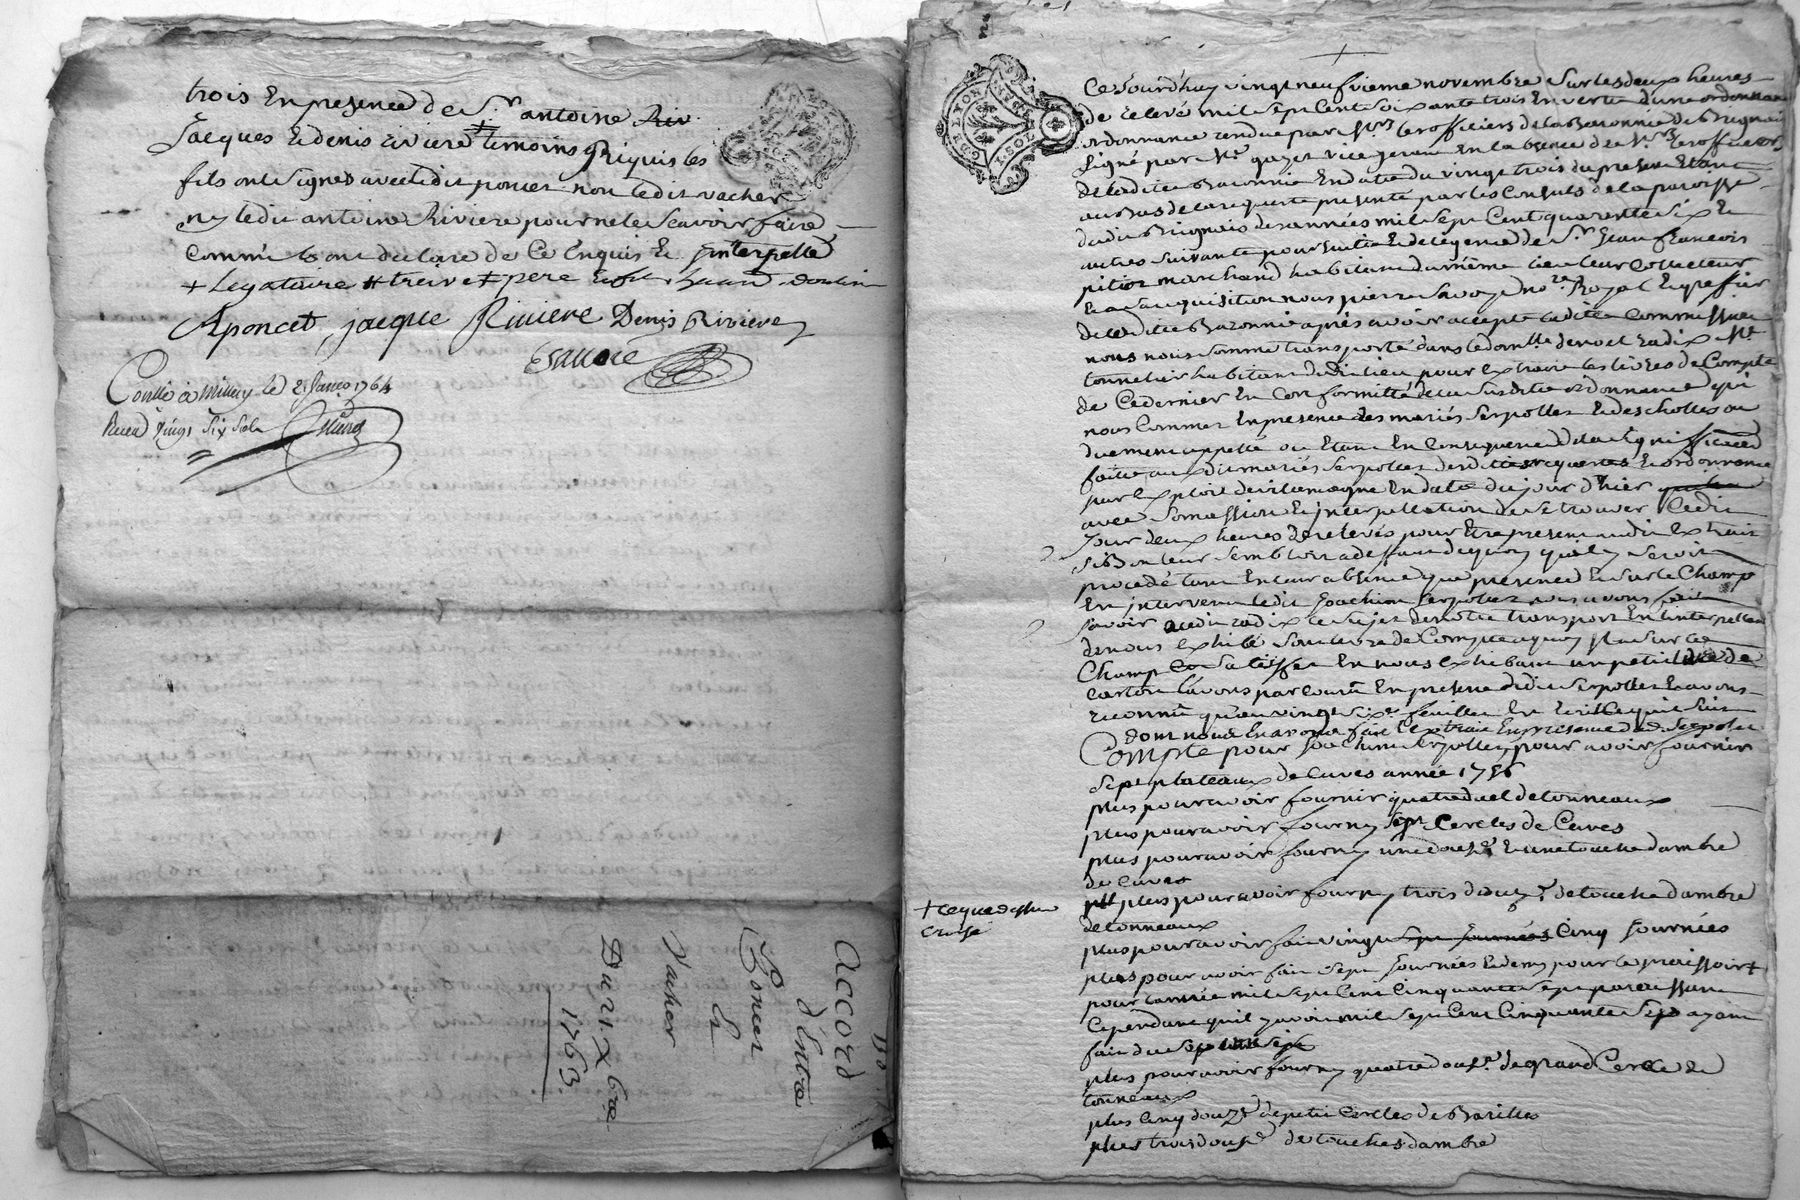 trois En presence de Sr. antoine Riv
Jacques & denis riviere temoins qui les
fils ont signes avec ledit poncet non ledit vacher
ny ledit antoine Riviere pour ne le scavoir faire
comme ils ont declaré de ce Enquis & interpellé
+ Legataire # + pere
Aponcet jacque Riviere Denis Riviere
Esavoie
Conllé à Millery le 2 janer 1764
Receu vings six sols
Accord
d'Entre
Poncet
&
Vacher
Du 21 Xbre
1763
GEN. LYON
Ce Jourd'huy vingt neufvieme novembre sur les deux heures
de relevé mil sept Cent soixante trois En vertu d'une ordonnan
ordonnance rendue par Mrs. les officiers de la Baronnie de Brignais
signé par Me. gayet vice gerant En l'absence de Mrs. les officiers
de ladite Baronnie En datte du vingt trois du present Etant
au bas de la requeste presenté par les Consuls de la paroisse
dudit Brignais des années mil sept Cent quarante six &
autres suivante poursuitte & delegence de Sr. Jean francois
pitiot marchand habitant du même lieu leur Collecteur
& a sa requisition nous pierre Savoye nore. Royal & greffier
de ladite Baronnie après avoir accepté ladite Commission
nous nous somme transporté dans le domlle. de noel radix Me.
tonnelier habitant dudit lieu pour Extraire les livres de Compte
de Ce dernier En Conformitté de la susditte ordonnance qui
nous Commet En presence des mariés Serpollet & des
duement appellé ou Etant En Consequence de la signiffication
faitte aux dit mariés Serpollet desdittes requestes & ordonnance
par Exploit de villemagne En datte du jour d'hier
avec somassion & interpellation de se trouver Cedit
Jour deux heures de relevés pour Etre present audit Extrait
si Bon leur semble
procedé tant En leur absence que presence & sur le Champ
Est intervenu ledit Joachim Serpollet nous avons fait
savoir audit radix le sujet de notre transport En l'interpellant
de nous Exhibé son livre de Compte a quoy il a sur le
Champ satisfait En nous Exhibant un petit livre de
carton l'avons parcourut En presence dudit Serpollet & avons
reconnut qu'au vingt sixe. feuillet Est Ecrit ce qui suit
dont nous En avons fait l'extrait En presence dud. Serpollet
Compte pour Joachim Serpollet, pour avoir fournir
Sept plateaux de Cuves année 1756
plus pour avoir fournir quatre duel de tonneaux
plus pour avoir fourny sept Cercles de Cuves
plus pour avoir fourny une douze. & une touche d'ambre
de Cuves
plus pour avoir fourny trois douze. de touche d'ambre
de tonneaux
plus pour avoir fait vingt sept journées Cinq Journées
plus pour avoir fait sept Journées & demy pour le pressoir +
pour l'année mil sept Cent Cinquante sept paroissant
Cependant qu'il y avoit mil sept Cent Cinquante Sept ayant
fait du sept un six
plus pour avoir fourny quatre douze. de grand Cercle de
tonneaux
plus Cinq douze. de petit Cercles de Barilles
plus trois douze. de touches d'ambre